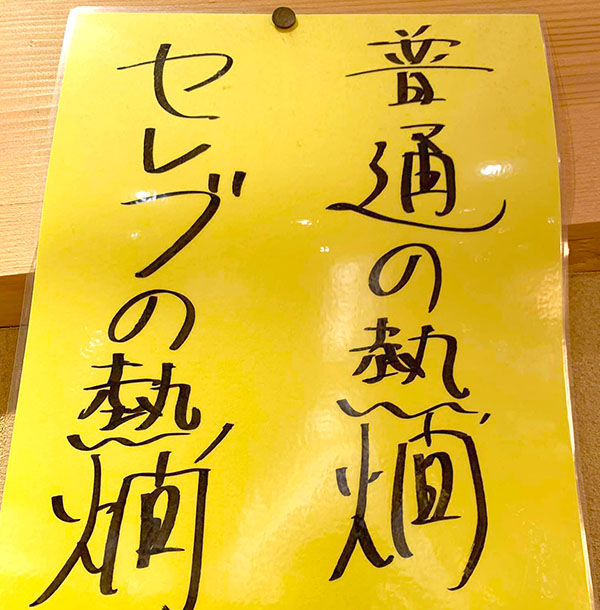 普通の熱燗
セレブの熱燗